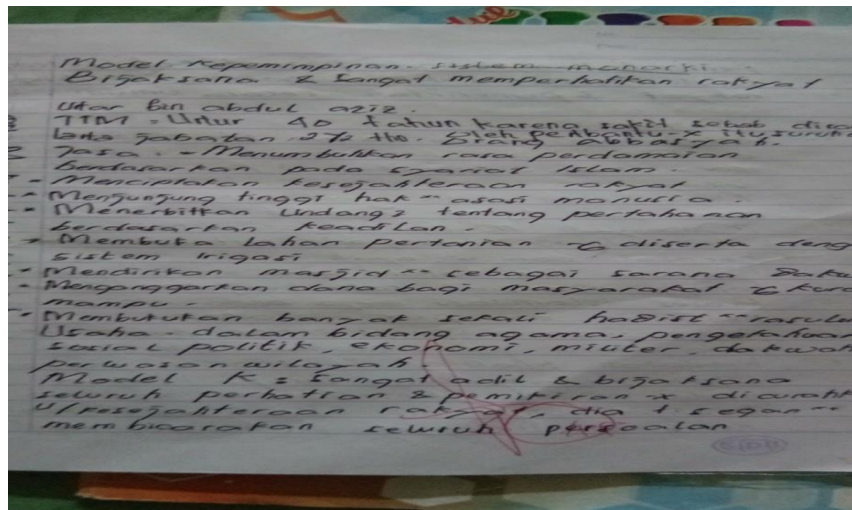 Model kepemimpinan. sistem monarki.
Bijaksana & sangat memperhatikan rakyat
Umar Bin abdul aziz.
TTM = Umur 40 tahun karena sakit sebab dira
lama jabatan 2½ thn. oleh pembantu-x itu suruha
Orang abbasyah.
Jasa. - Menumbuhkan rasa perdamaian
berdasarkan pada syariat Islam.
- Menciptakan kesejahteraan rakyat
- Menjunjung tinggi hak" asasi manusia.
- Menerbitkan Undang2 tentang pertahanan
berdasarkan keadilan.
- Membuka lahan pertanian yg diserta deng
sistem irigasi
- Mendirikan masjid" sebagai sarana Dakw
- Menganggarkan dana bagi masyarakat yg kura
mampu.
- Membukukan banyak sekali hadist" rasulu
Usaha. dalam bidang agama, pengetahuan
sosial politik, ekonomi, militer, dakwah
perluasan wilayah
Model K = sangat adil & bijaksana
seluruh perhatian & pemikiran-x dicurahk
u/kesejahteraan rakyat, dia t segan"
membicarakan seluruh persoalan
SIDU